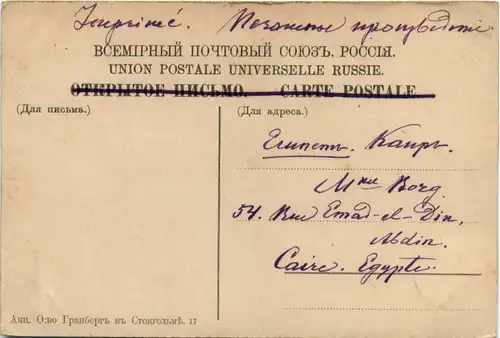 Imprimé. Печатное произведение
ВСЕМІРНЫЙ ПОЧТОВЫЙ СОЮЗЪ. РОССІЯ.
UNION POSTALE UNIVERSELLE RUSSIE.
ОТКРЫТОЕ ПИСЬМО. CARTE POSTALE.
(Для письма.)
(Для адреса.)
Египетъ. Каиръ.
Mme Borg
54. Rue Emad-el-Din,
Abdin.
Caire. Egypte.
Акц. О:во Гранбергъ въ Стокгольмѣ. 17